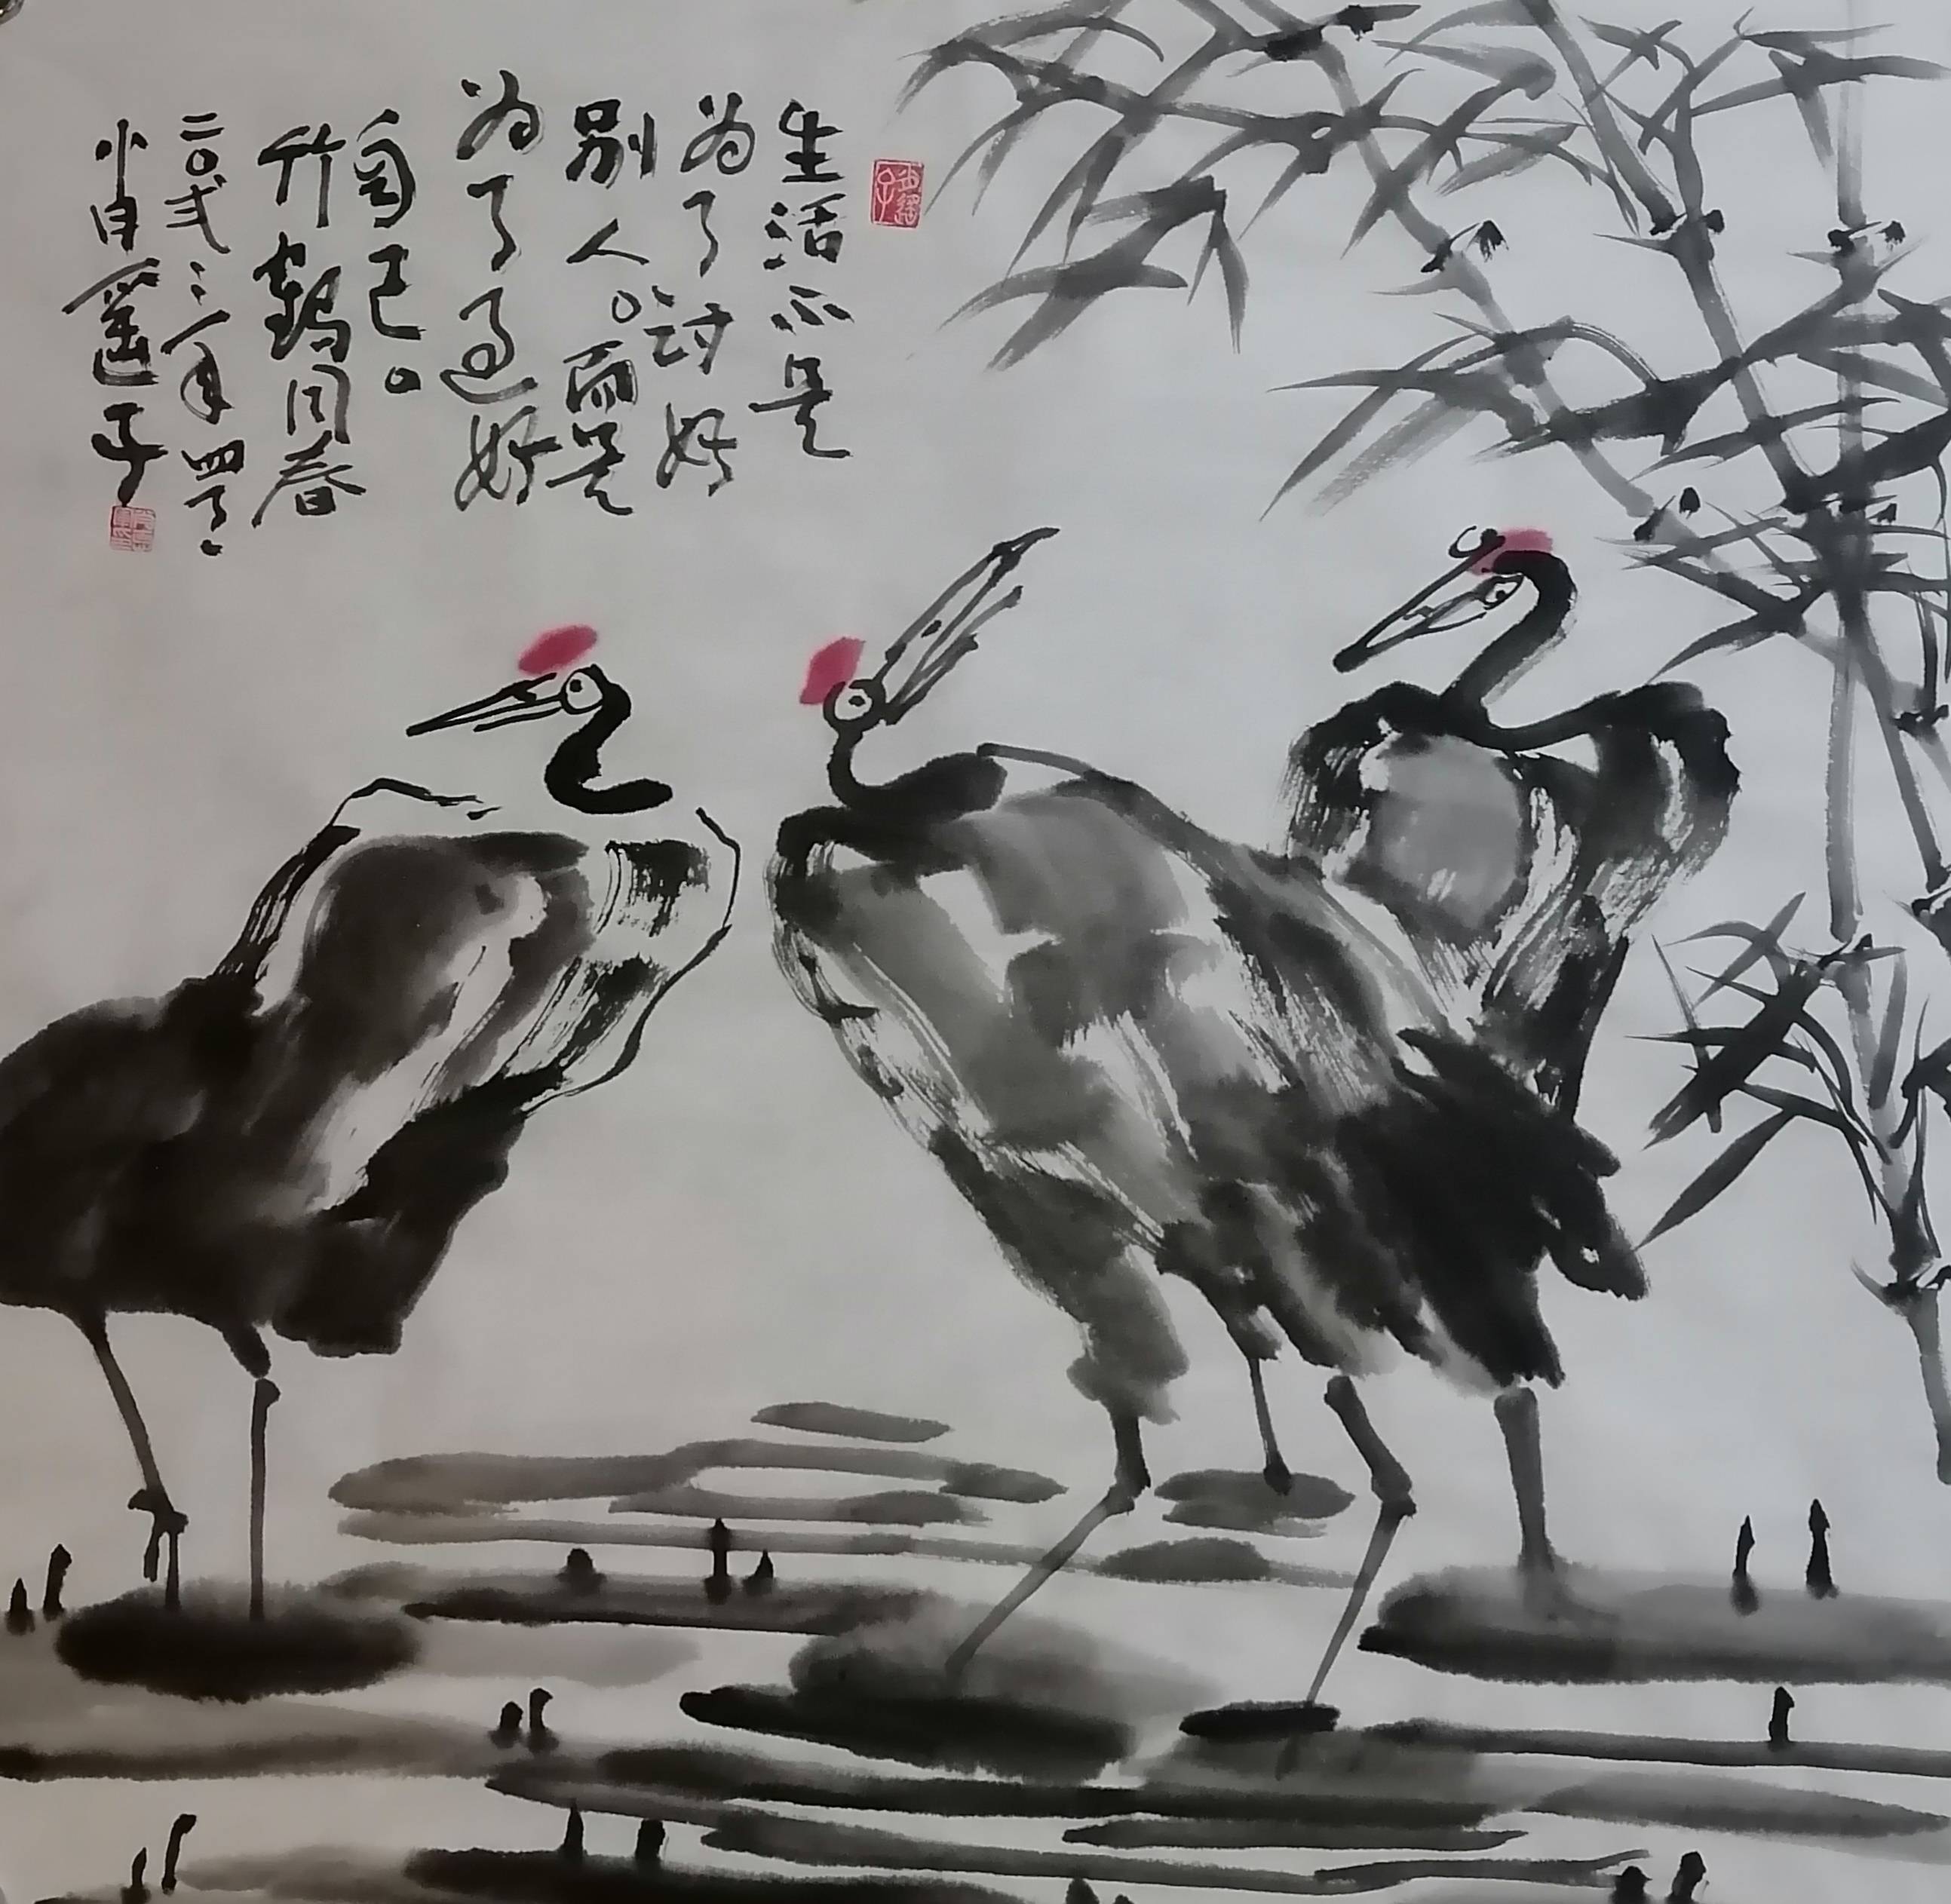 生活不是
为了讨好
别人。而是
为了过好
自己。
竹鹤同春
二〇弍三年四月
逍遥子